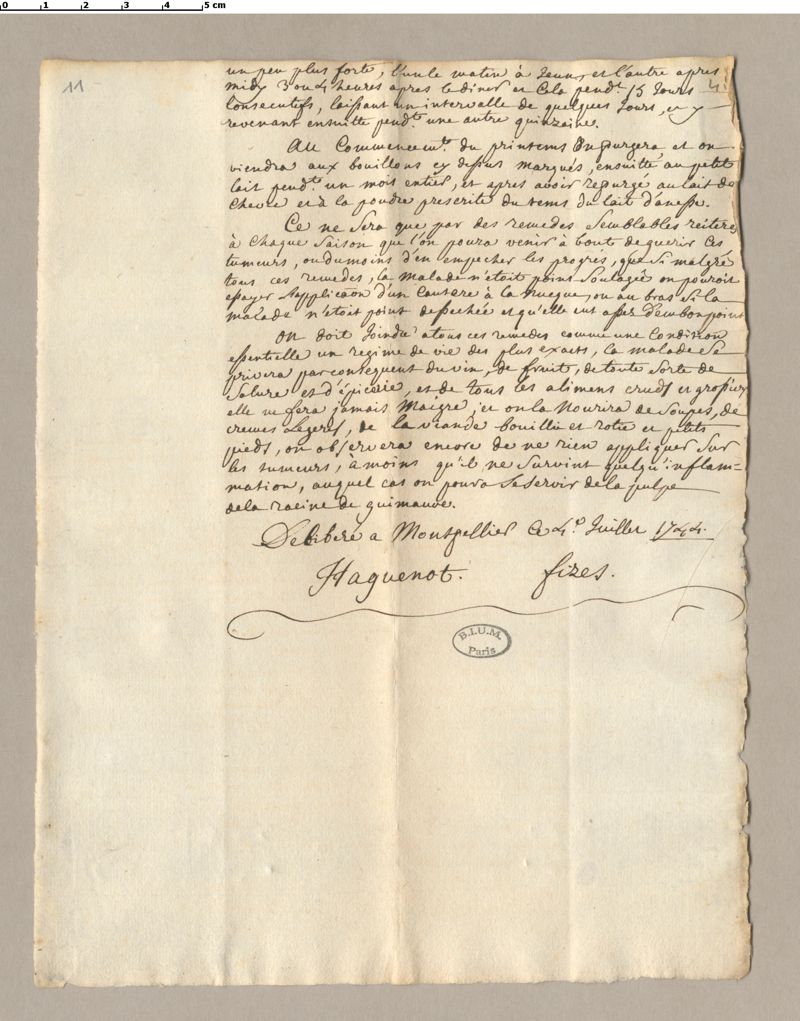 0 1 2 3 4 5 cm
11
un peu plus forte, l'un le matin à Jeun, et l'autre apres
midy 3 ou 4 heures apres le diner et Cela pendt. 15 Jours
Consecutifs, laissant un intervalle de quelques Jours, et y
revenant ensuitte pendt. une autre quinzaine.
Au Commencemt. du printems On purgera et on
viendra aux bouillons cy dessus marqués, ensuitte au petit
lait pendt. un mois entier, et apres avoir repurgé au lait de
Chevre et à la poudre prescrite du tems du lait d'anesse.
Ce ne sera que par des remedes semblables reiteres
à Chaque Saison que l'on poura venir à boute de guerir Ces
tumeurs, ou du moins d'en empecher les progrés, que si malgré
tous ces remedes, la Malade n'étoit point Soulagée on pouroit
essayer l'applicaon d'un Cautere à la nuque, ou au bras Si la
malade n'étoit point dessechée et qu'elle eut assez D'embonpoint
On doit Joindre a tous ces remedes comme une Condition
essentielle un regime de vie des plus exacts, la malade Se
privera par consequent du vin, de fruits, de toute Sorte de
Salure et d'épicerie, et de tous les alimens cruds et grossiers
elle ne fera jamais Maigre, et on la Nourira de Soupes, de
cremes Legeres, de la viande bouillie et rotie et petits
pieds, on observera encore de ne rien appliquer sur
les tumeurs, à moins qu'il ne Survint quelqu'inflam=
mation, auquel cas on poura Se Servir de la pulpe
de la racine de guimauve.
Deliberé a Montpellier Ce 4.e Juillet 1744.
Haguenot. fizes.
B.I.U.M.
Paris